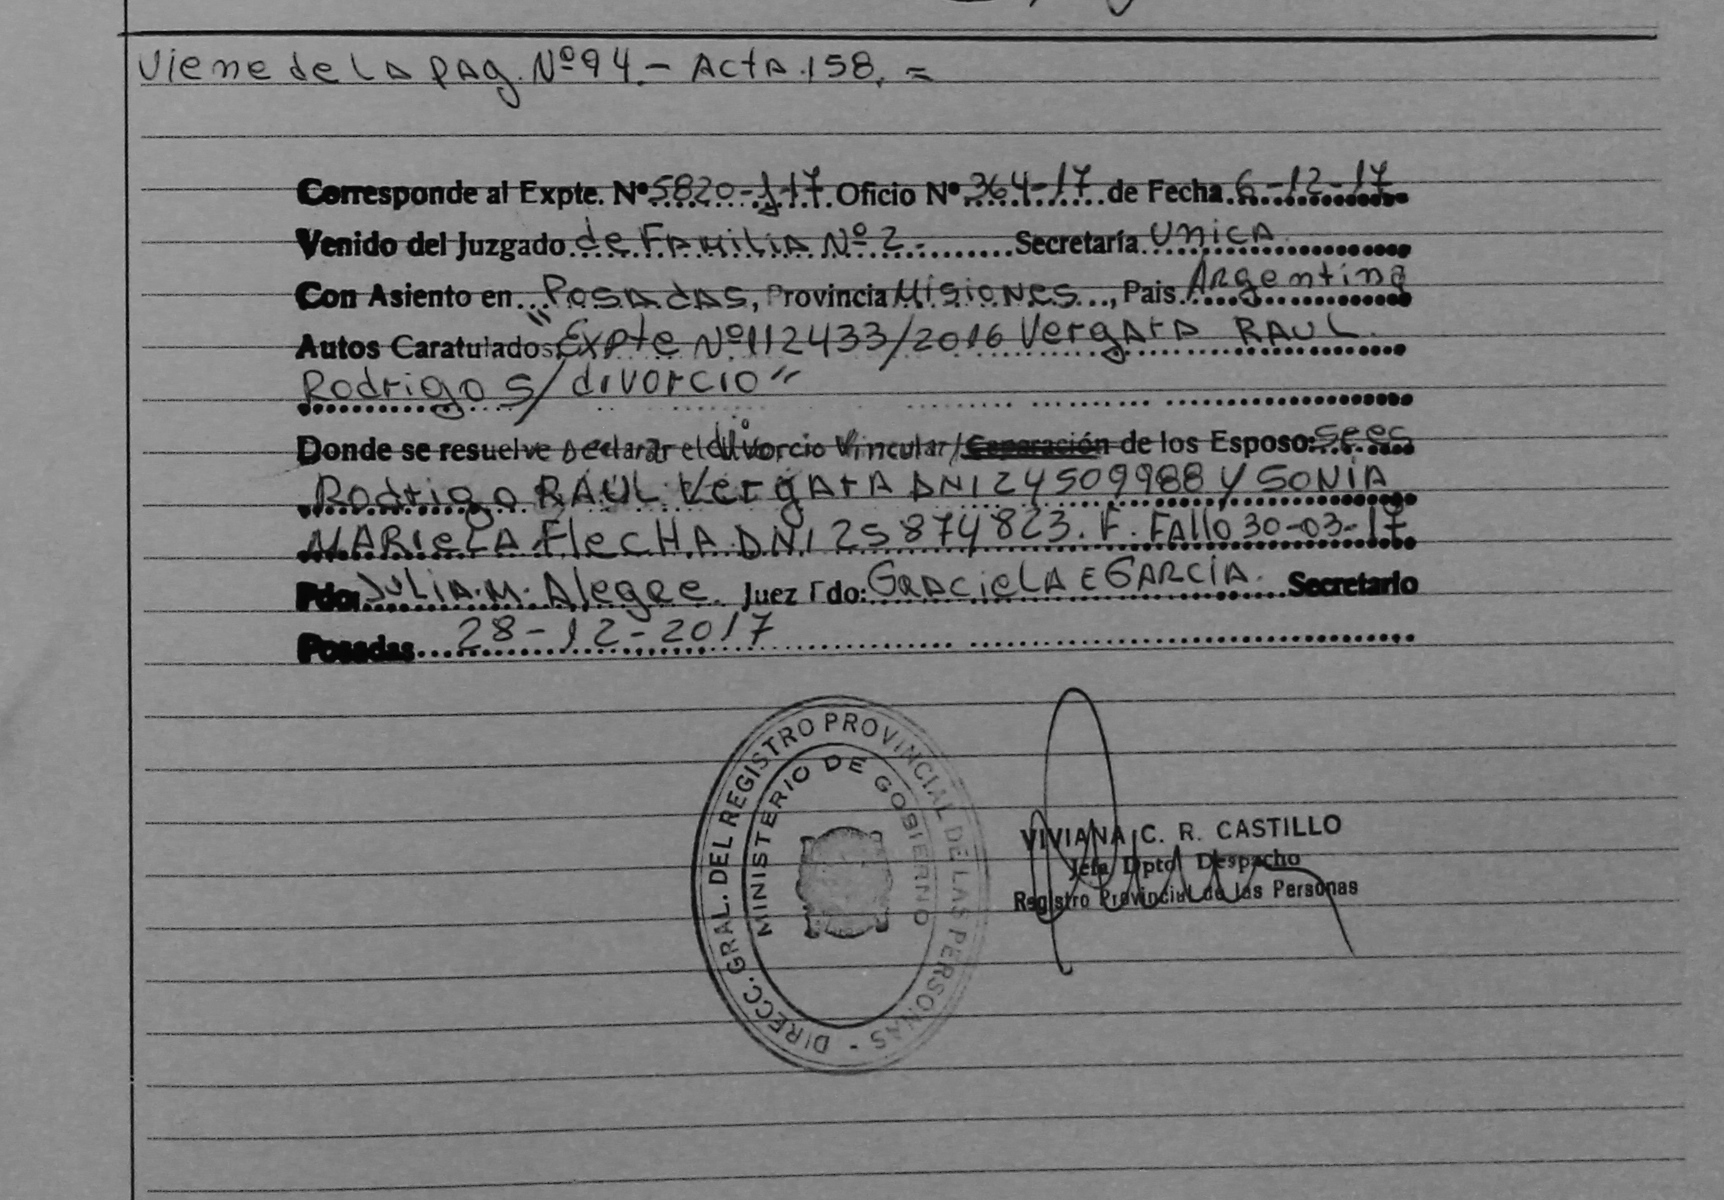 Viene de LA PAg. Nº 94.- ActA 158. =
Corresponde al Expte. Nº 5820-J-17 Oficio Nº 364-17 de Fecha 6-12-17
Venido del Juzgado de FAMiLiA Nº 2. Secretaría UNiCA
Con Asiento en PosAdAS, Provincia MisioNes, Pais Argentina
Autos Caratulados "Expte Nº 112433/2016 VergArA RAUL
Rodrigo S/ divorcio"
Donde se resuelve Declarar el divorcio Vincular/Separación de los Esposo: sres
Rodrigo RAUL VergArA DNI 24509988 Y SONIA
MARIELA FlecHA DNI 25874823. F. FAllo 30-03-17
Fdo: JULiA. M. Alegre. Juez Fdo: GRACieLA E GARCIA. Secretario
Posadas 28-12-2017
DIRECC. GRAL. DEL REGISTRO PROVINCIAL DE LAS PERSONAS -
MINISTERIO DE GOBIERNO
VIVIANA C. R. CASTILLO
Jefa Dpto Despacho
Registro Provincial de las Personas